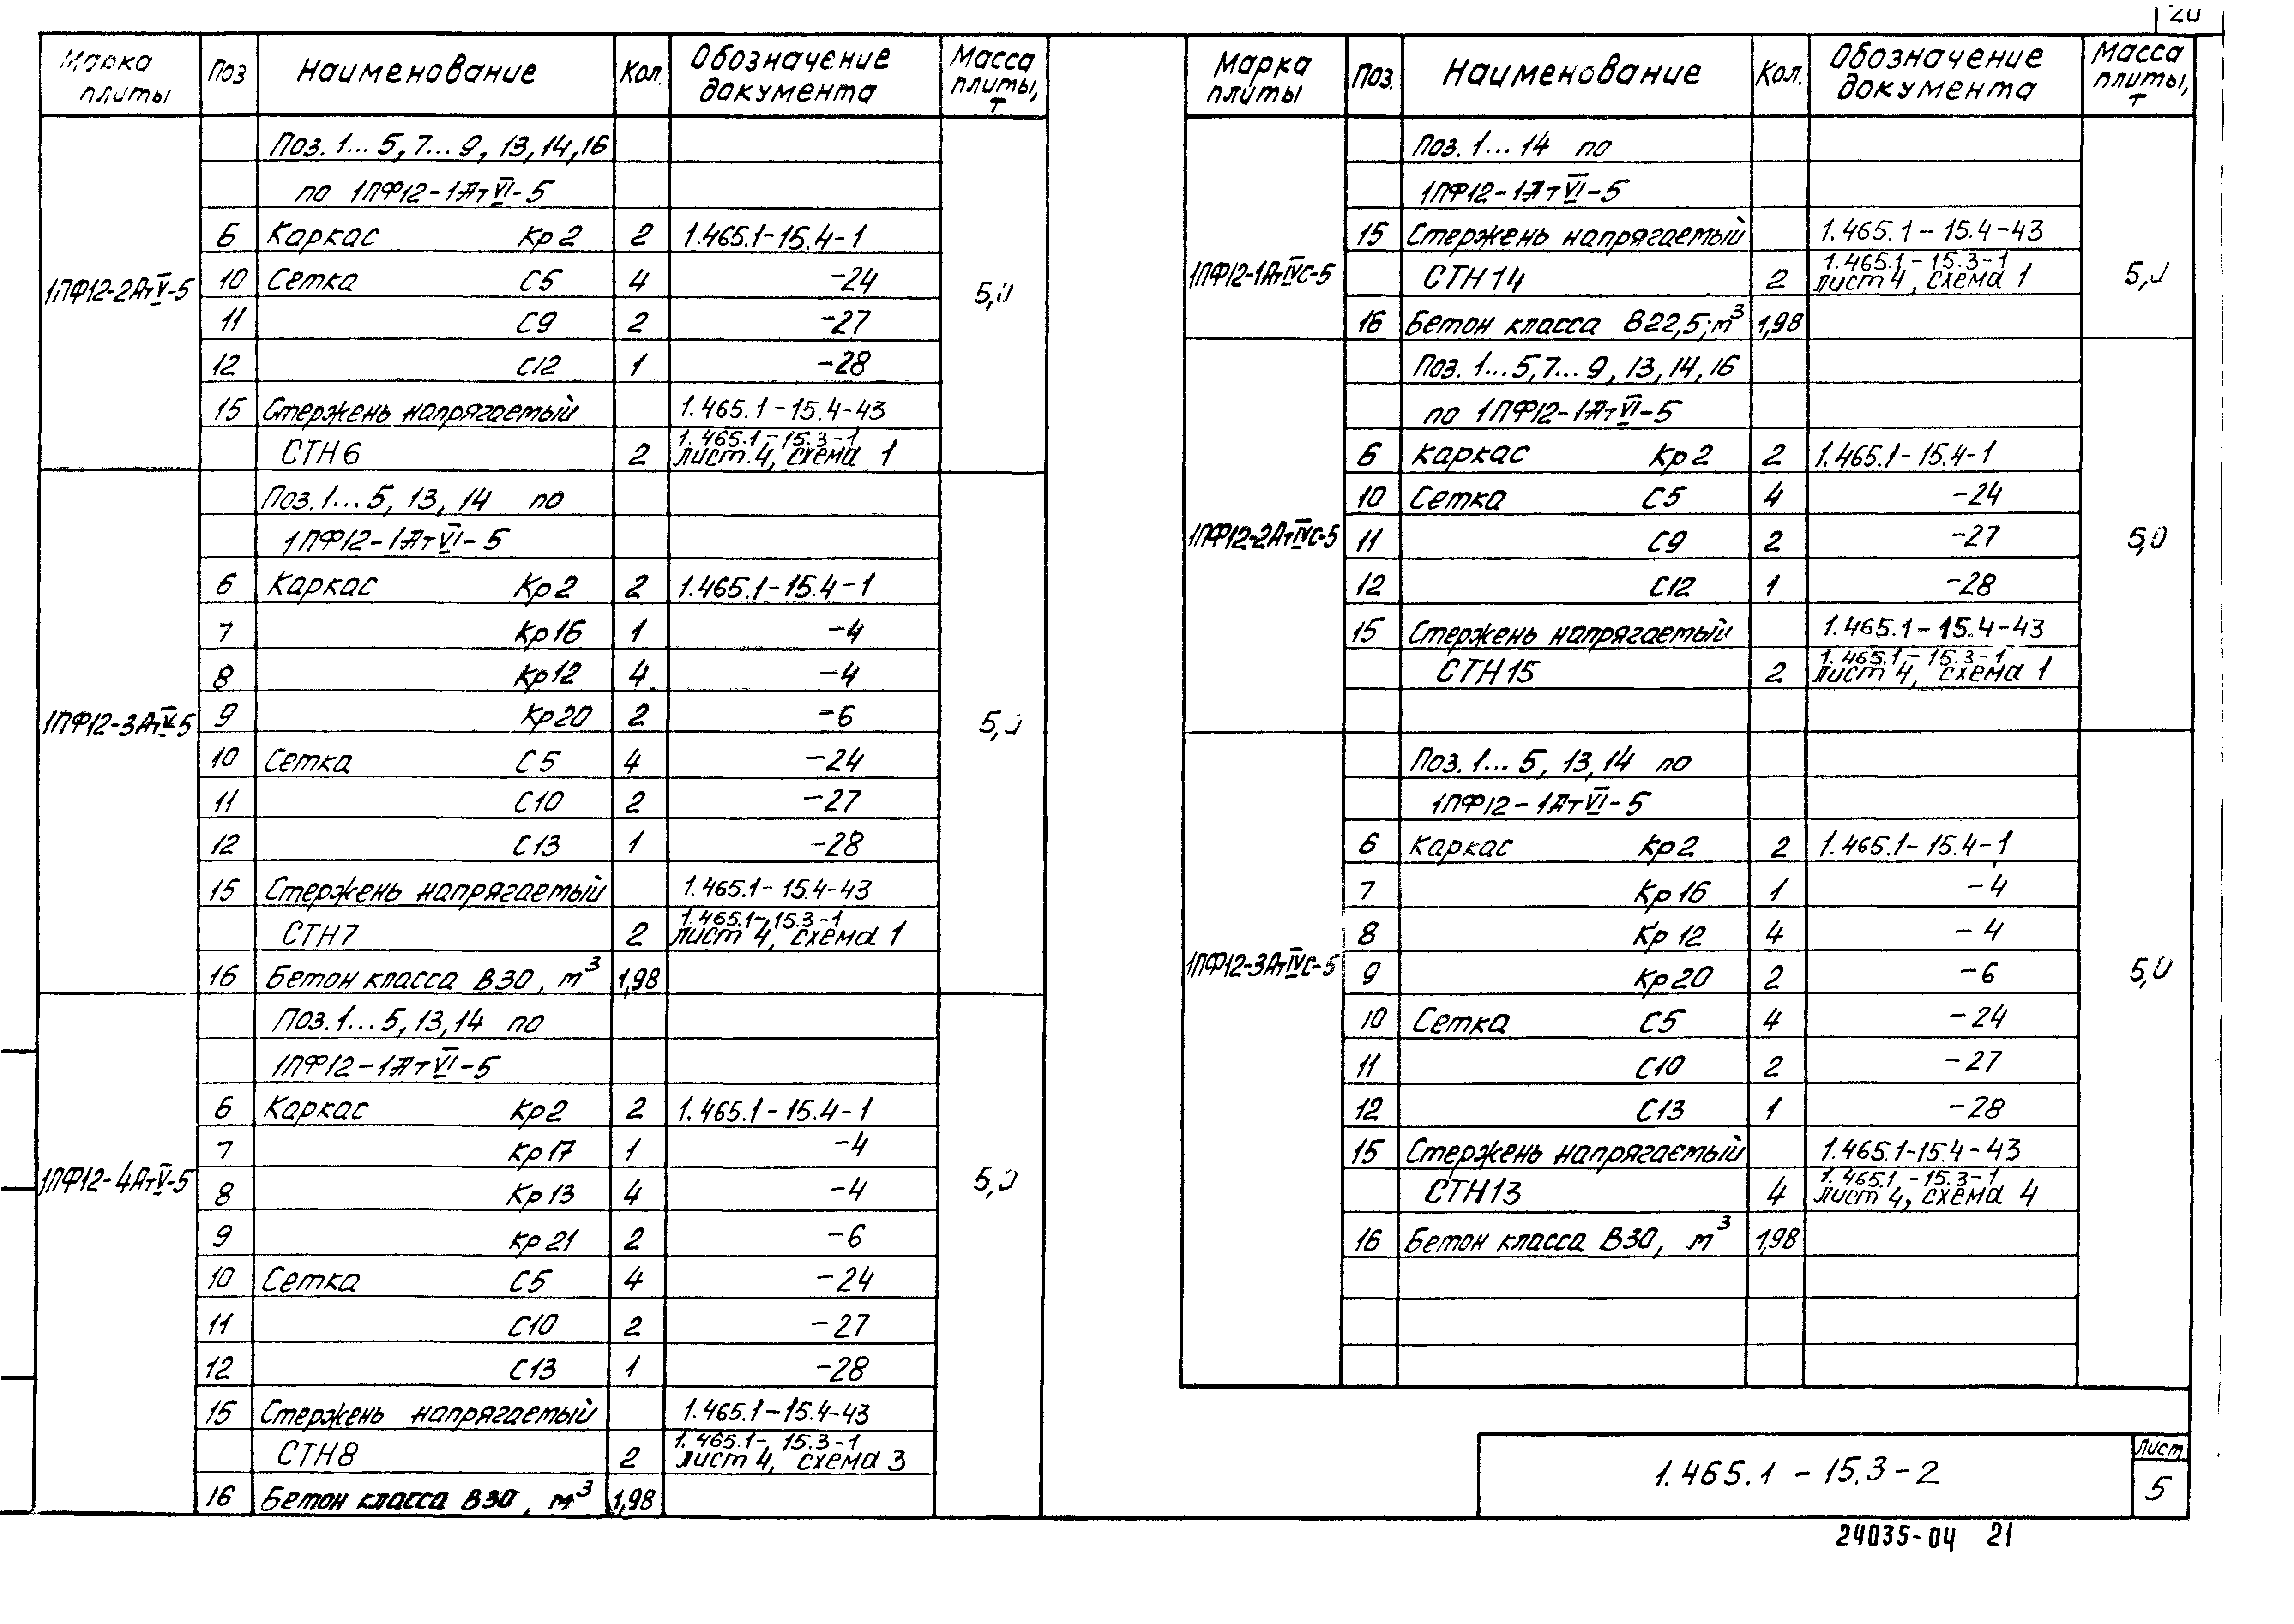 20
Марка плиты | Поз | Наименование | Кол. | Обозначение документа | Масса плиты, т
1ПФ12-2АтV-5 | 5,0
Поз. 1...5, 7...9, 13, 14, 16
по 1ПФ12-1АтVI-5
6 Каркас Кр2 2 1.465.1-15.4-1
10 Сетка С5 4 -24
11 С9 2 -27
12 С12 1 -28
15 Стержень напрягаемый 1.465.1-15.4-43
СТН6 2 1.465.1-15.3-1 лист 4, схема 1
1ПФ12-3АтV-5 | 5,0
Поз. 1...5, 13, 14 по
1ПФ12-1АтVI-5
6 Каркас Кр2 2 1.465.1-15.4-1
7 Кр16 1 -4
8 Кр12 4 -4
9 Кр20 2 -6
10 Сетка С5 4 -24
11 С10 2 -27
12 С13 1 -28
15 Стержень напрягаемый 1.465.1-15.4-43
СТН7 2 1.465.1-15.3-1 лист 4, схема 1
16 Бетон класса В30, м³ 1,98
1ПФ12-4АтV-5 | 5,0
Поз. 1...5, 13, 14 по
1ПФ12-1АтVI-5
6 Каркас Кр2 2 1.465.1-15.4-1
7 Кр17 1 -4
8 Кр13 4 -4
9 Кр21 2 -6
10 Сетка С5 4 -24
11 С10 2 -27
12 С13 1 -28
15 Стержень напрягаемый 1.465.1-15.4-43
СТН8 2 1.465.1-15.3-1 лист 4, схема 3
16 Бетон класса В30, м³ 1,98
Марка плиты | Поз. | Наименование | Кол. | Обозначение документа | Масса плиты, т
1ПФ12-1АтIVС-5 | 5,0
Поз. 1...14 по
1ПФ12-1АтVI-5
15 Стержень напрягаемый 1.465.1-15.4-43
СТН14 2 1.465.1-15.3-1 лист 4, схема 1
16 Бетон класса В22,5; м³ 1,98
1ПФ12-2АтIVС-5 | 5,0
Поз. 1...5, 7...9, 13, 14, 16
по 1ПФ12-1АтVI-5
6 Каркас Кр2 2 1.465.1-15.4-1
10 Сетка С5 4 -24
11 С9 2 -27
12 С12 1 -28
15 Стержень напрягаемый 1.465.1-15.4-43
СТН15 2 1.465.1-15.3-1 лист 4, схема 1
1ПФ12-3АтIVС-5 | 5,0
Поз. 1...5, 13, 14 по
1ПФ12-1АтVI-5
6 Каркас Кр2 2 1.465.1-15.4-1
7 Кр16 1 -4
8 Кр12 4 -4
9 Кр20 2 -6
10 Сетка С5 4 -24
11 С10 2 -27
12 С13 1 -28
15 Стержень напрягаемый 1.465.1-15.4-43
СТН13 4 1.465.1-15.3-1 лист 4, схема 4
16 Бетон класса В30, м³ 1,98
1.465.1-15.3-2
Лист
5
24035-04 21